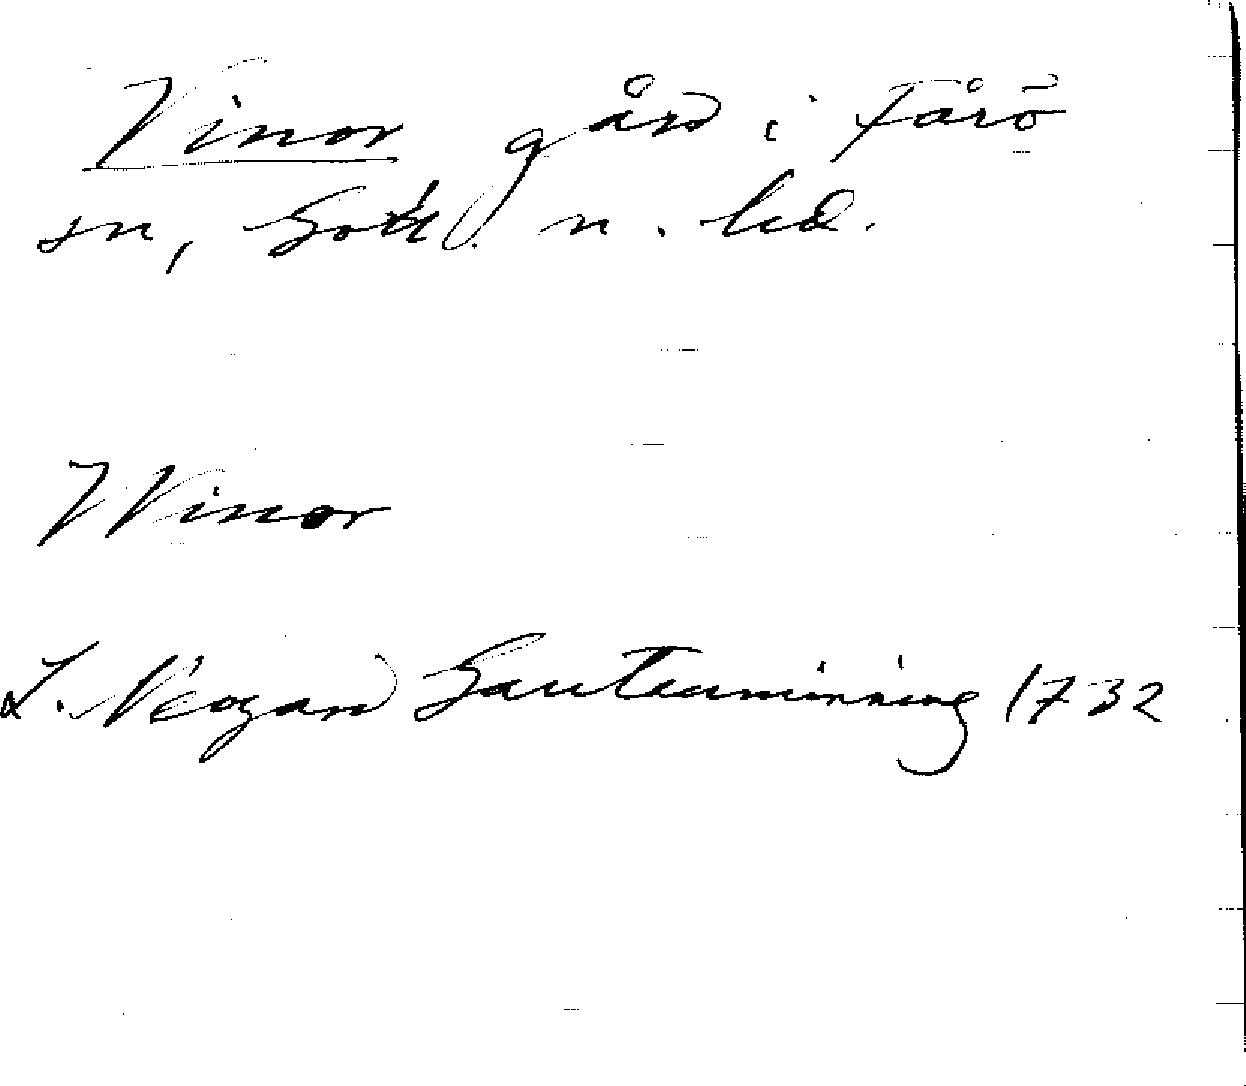 Vinor gård i Fårö
sn, Gotl. n. hd.
Winor
L. Neogard Gautauminning 1732